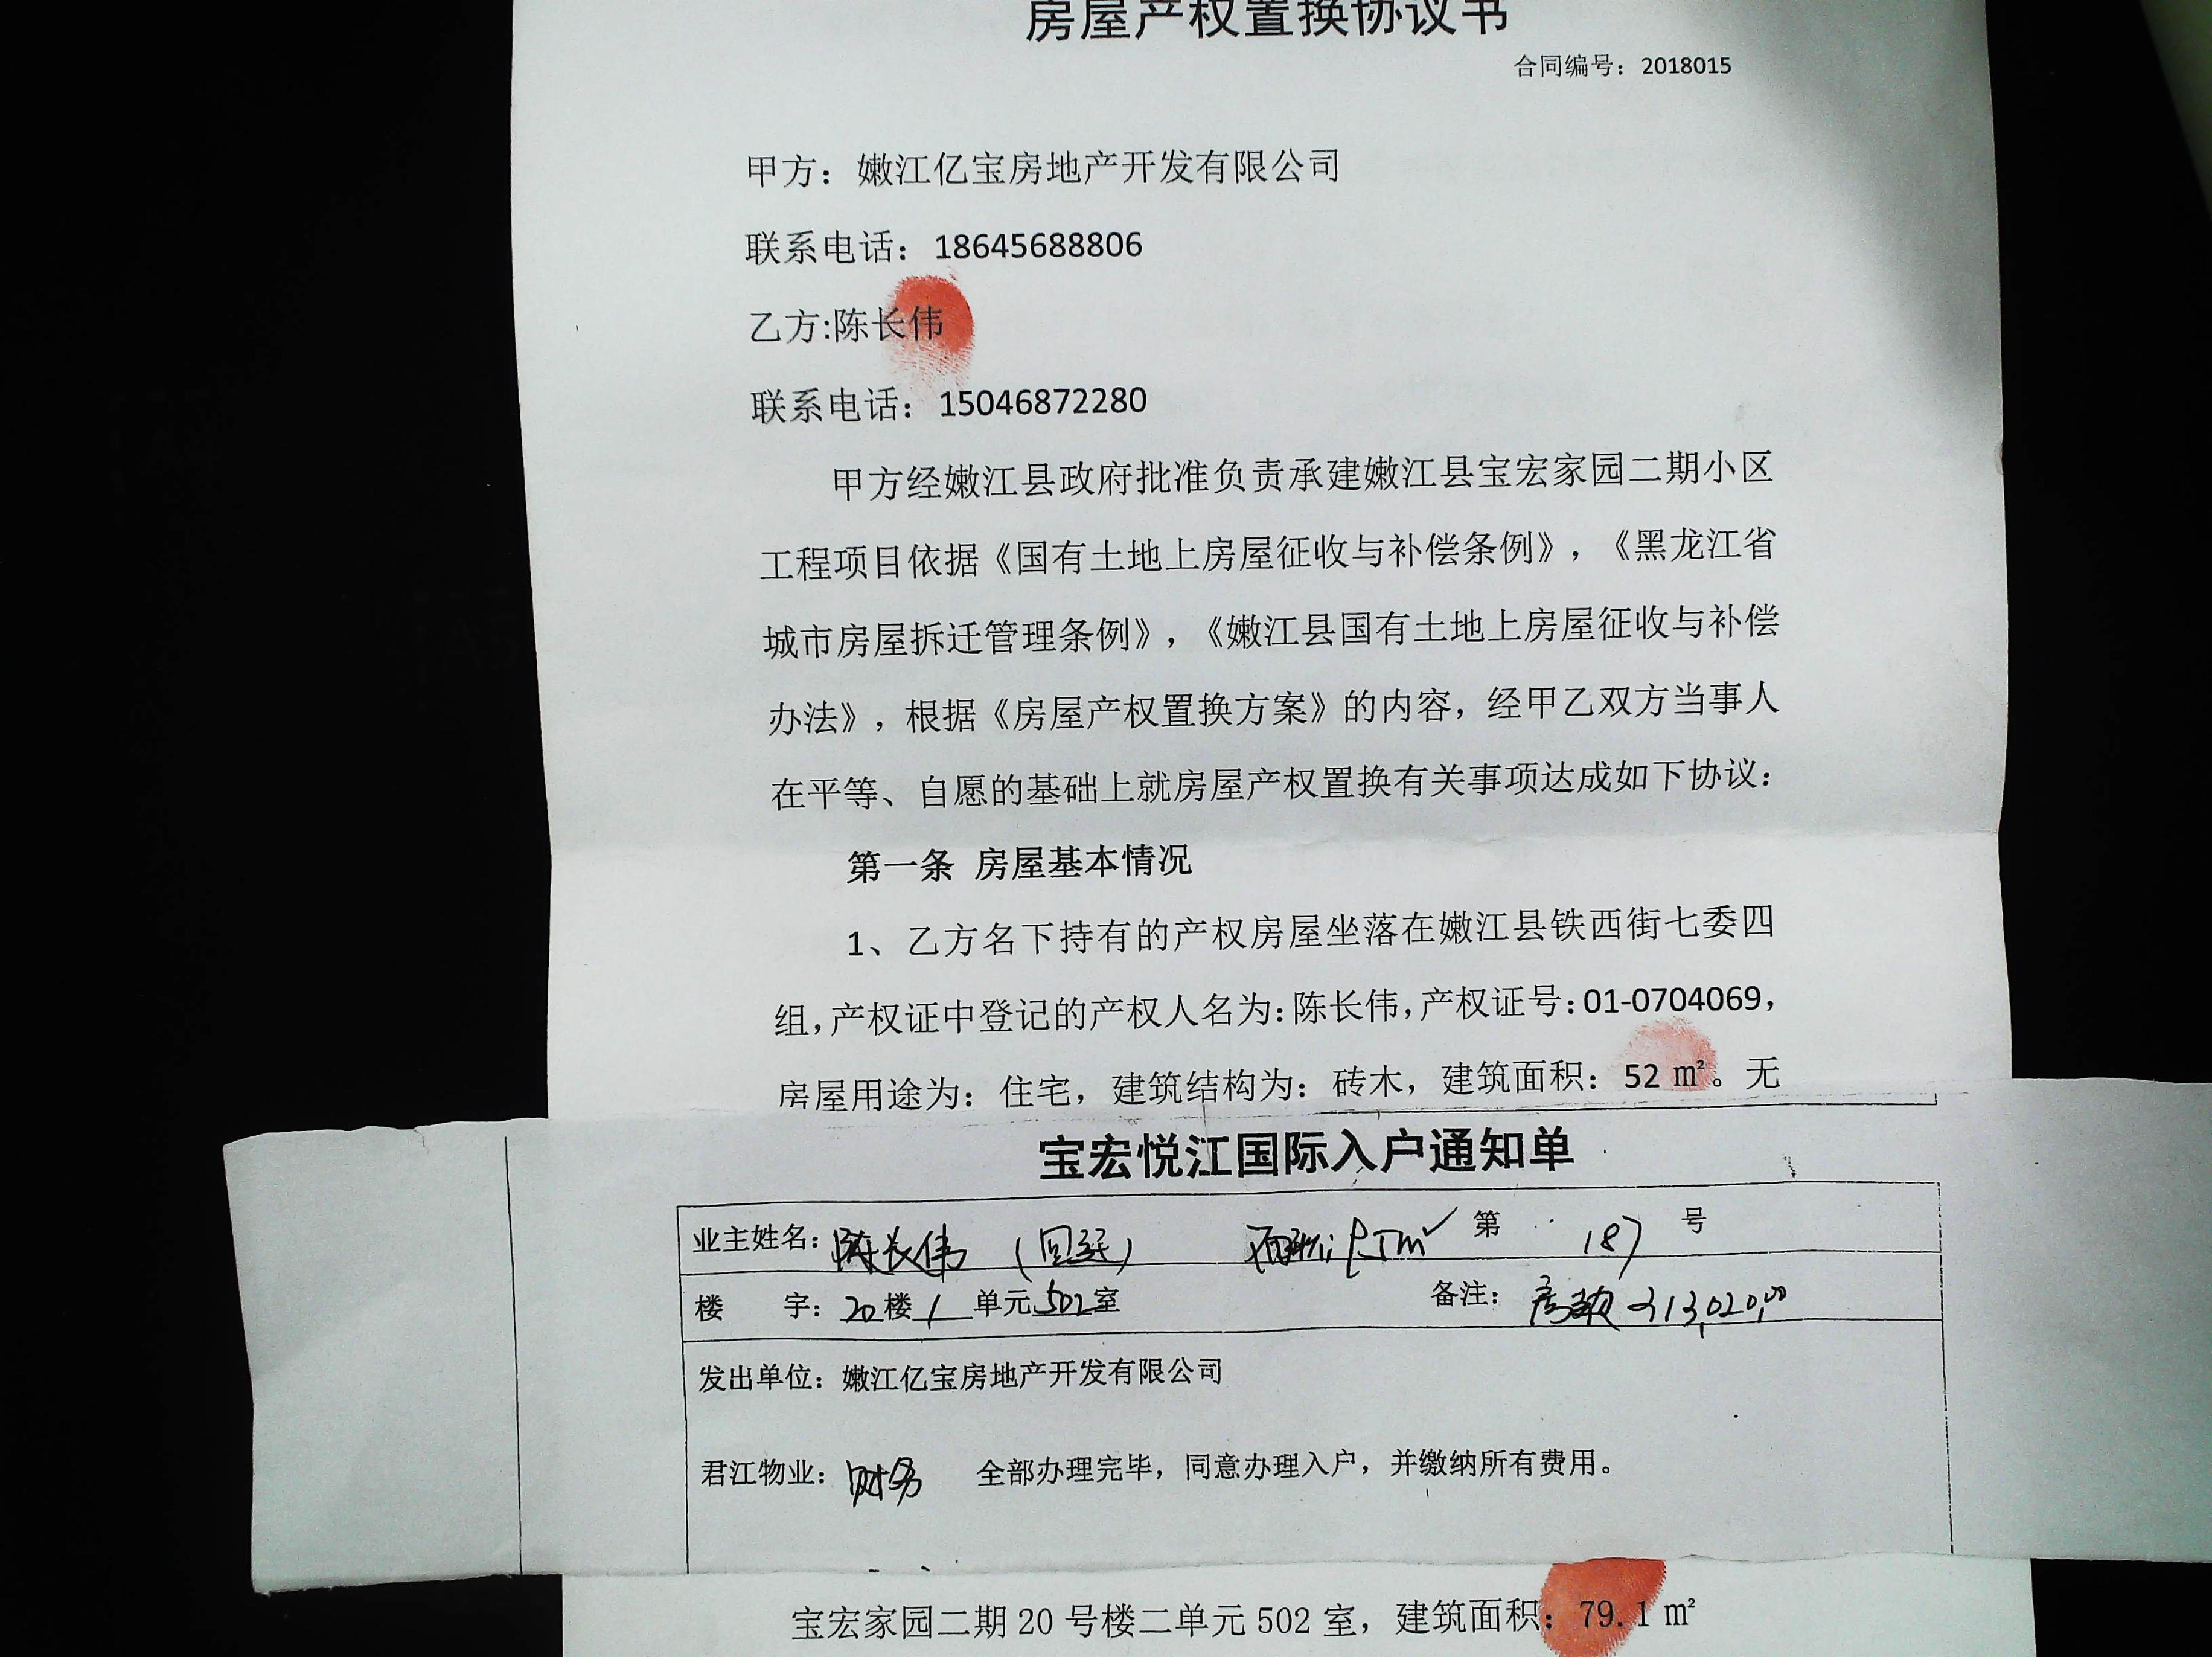 房屋产权置换协议书
合同编号：2018015
甲方：嫩江亿宝房地产开发有限公司
联系电话：18645688806
乙方:陈长伟
联系电话：15046872280
甲方经嫩江县政府批准负责承建嫩江县宝宏家园二期小区
工程项目依据《国有土地上房屋征收与补偿条例》，《黑龙江省
城市房屋拆迁管理条例》，《嫩江县国有土地上房屋征收与补偿
办法》，根据《房屋产权置换方案》的内容，经甲乙双方当事人
在平等、自愿的基础上就房屋产权置换有关事项达成如下协议：
第一条 房屋基本情况
1、乙方名下持有的产权房屋坐落在嫩江县铁西街七委四
组,产权证中登记的产权人名为:陈长伟,产权证号:01-0704069，
房屋用途为：住宅，建筑结构为：砖木，建筑面积：52 ㎡。无
宝宏悦江国际入户通知单
业主姓名：陈长伟（回迁） 第 187 号
楼 宇：20楼1单元502室 备注：房款 313,020.00
发出单位：嫩江亿宝房地产开发有限公司
君江物业：财务 全部办理完毕，同意办理入户，并缴纳所有费用。
宝宏家园二期 20 号楼二单元 502 室，建筑面积：79.1 ㎡